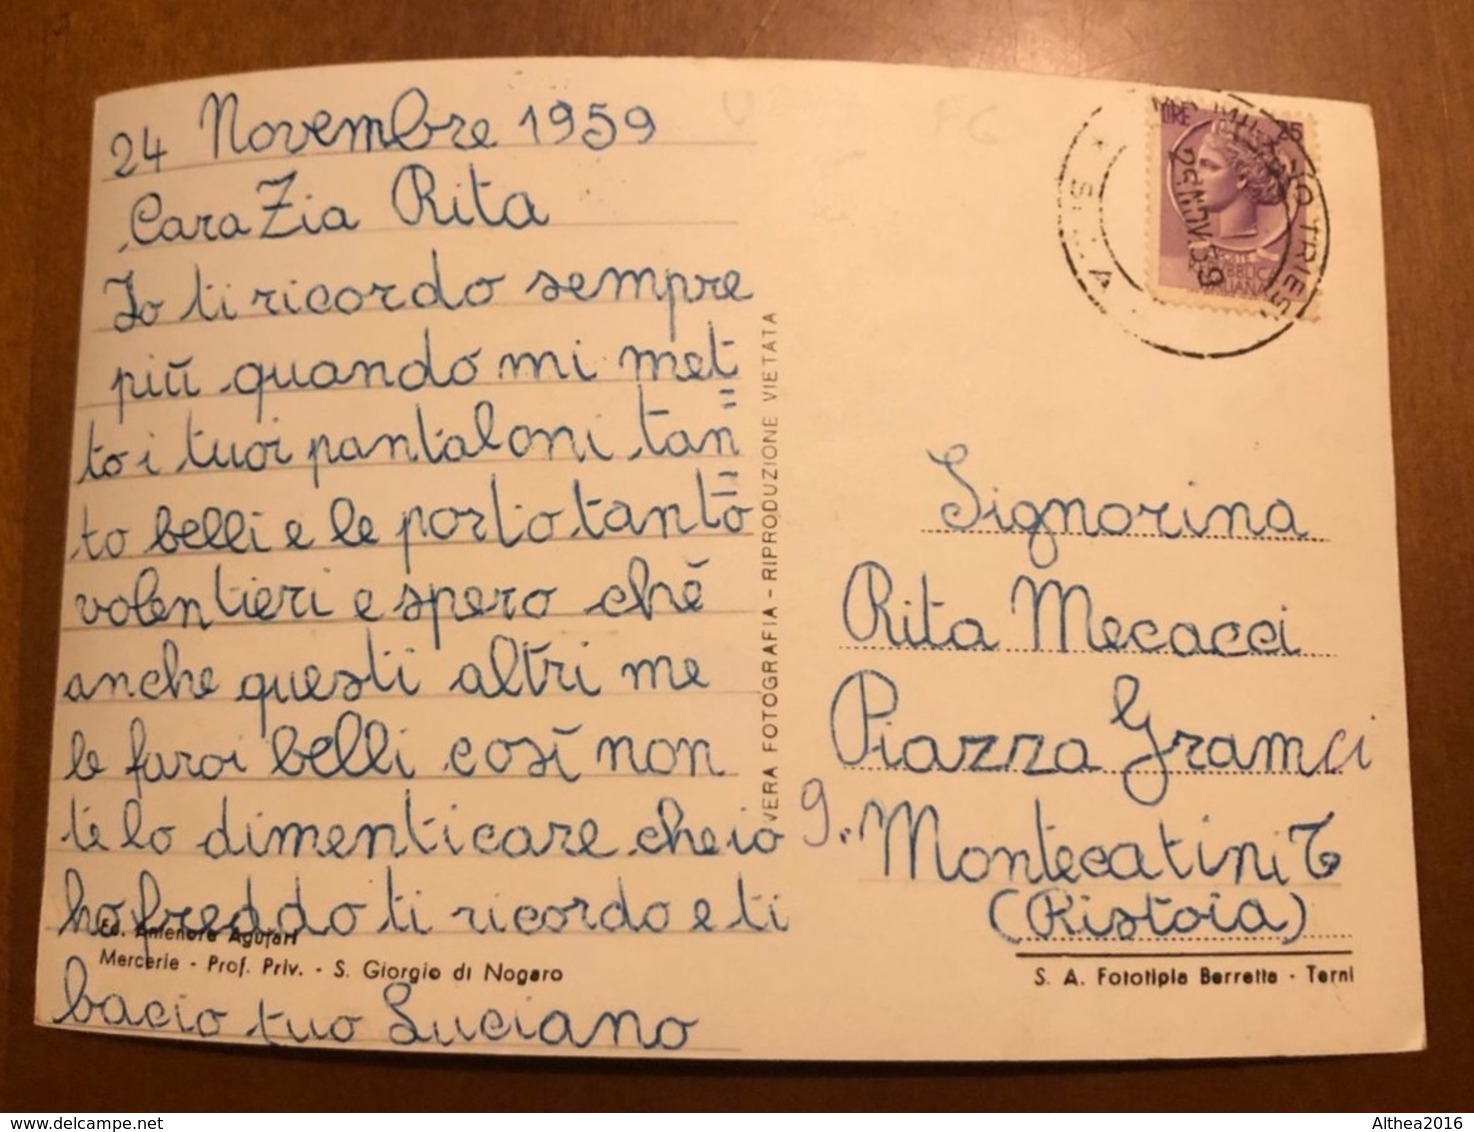 24 Novembre 1959
Cara Zia Rita
Io ti ricordo sempre
più quando mi met
=
to i tuoi pantaloni tan
=
to belli e le porto tanto
volentieri e spero chè
anche questi altri me
le farai belli così non
te lo dimenticare che io
ho freddo ti ricordo e ti
bacio tuo Luciano
Ed. Antenore Agufari
Mercerie - Prof. Priv. - S. Giorgio di Nogaro
VERA FOTOGRAFIA - RIPRODUZIONE VIETATA
LIRE 25
REPUBBLICA
ITALIANA
26 NOV. 59
TRIES
Signorina
Rita Mecacci
Piazza Gramci
9.
Montecatini T
(Pistoia)
S. A. Fototipia Berretta - Terni
delcampe.net
Althea2016